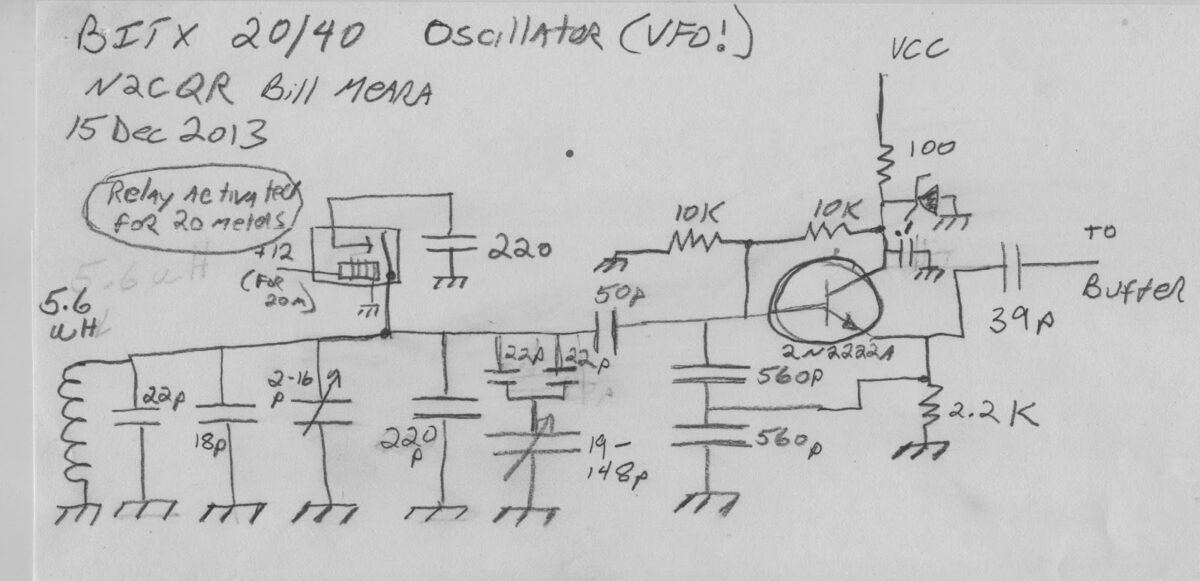 BITX 20/40 OSCILLATOR (VFO!)
N2CQR Bill MEARA
15 Dec 2013
VCC
100
Relay Activated
FOR 20 meters
10K
10K
.1
+12
(FOR
20m)
220
TO
Buffer
5.6 uH
5.6
uH
50p
39p
2N2222A
22p
18p
2-16
p
220
p
22p
22p
19-
148p
560p
560p
2.2K